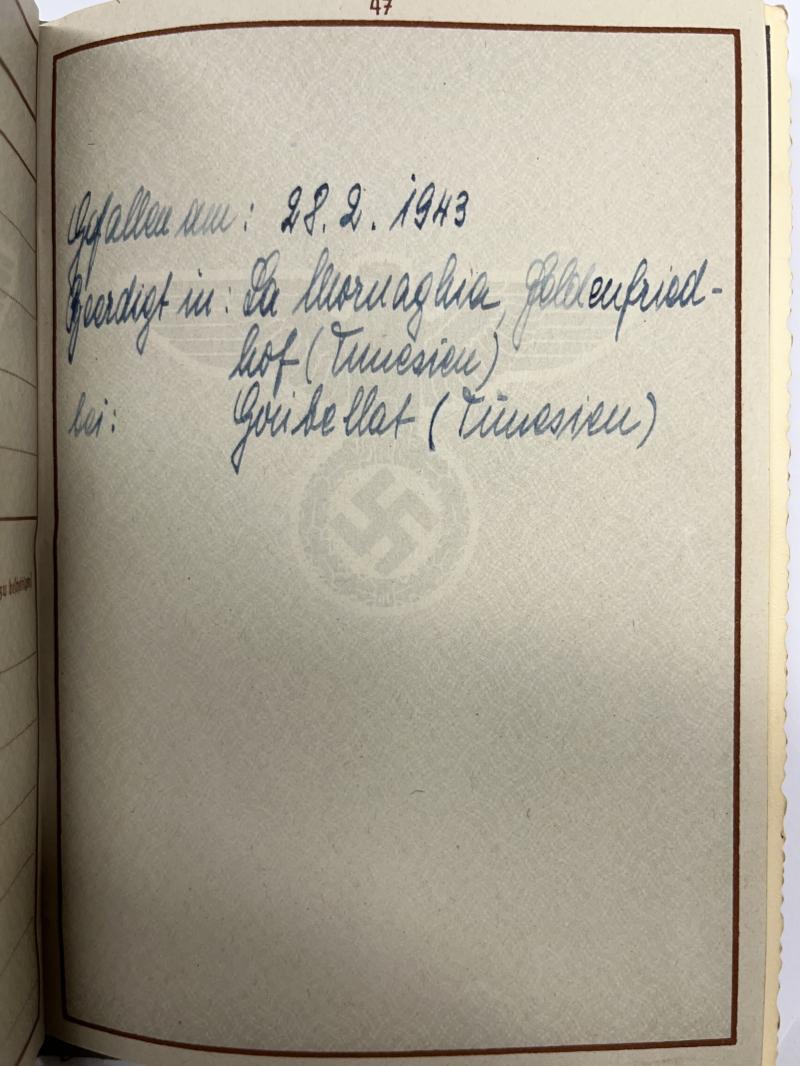 47
Gefallen am: 28.2.1943
Beerdigt in: La Mornaghia, Heldenfried-
hof (Tunesien)
bei: Goubellat (Tunesien)
zu bescheinigen)